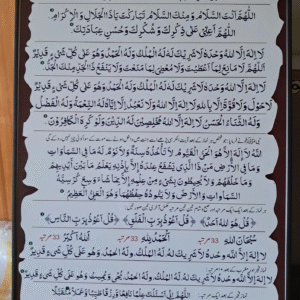 اَللّٰهُمَّ اَنْتَ السَّلَامُ وَمِنْكَ السَّلَامُ تَبَارَكْتَ يَا ذَا الْجَلَالِ وَالْاِكْرَامِ
اَللّٰهُمَّ اَعِنِّیْ عَلٰی ذِكْرِكَ وَشُكْرِكَ وَحُسْنِ عِبَادَتِكَ
لَا اِلٰهَ اِلَّا اللّٰهُ وَحْدَهٗ لَا شَرِيْكَ لَهٗ لَهُ الْمُلْكُ وَلَهُ الْحَمْدُ وَهُوَ عَلٰی كُلِّ شَیْءٍ قَدِيْرٌ
اَللّٰهُمَّ لَا مَانِعَ لِمَا اَعْطَيْتَ وَلَا مُعْطِیَ لِمَا مَنَعْتَ وَلَا يَنْفَعُ ذَا الْجَدِّ مِنْكَ الْجَدُّ
لَا اِلٰهَ اِلَّا اللّٰهُ وَحْدَهٗ لَا شَرِيْكَ لَهٗ لَهُ الْمُلْكُ وَلَهُ الْحَمْدُ وَهُوَ عَلٰی كُلِّ شَیْءٍ قَدِيْرٌ
لَا حَوْلَ وَلَا قُوَّةَ اِلَّا بِاللّٰهِ لَا اِلٰهَ اِلَّا اللّٰهُ وَلَا نَعْبُدُ اِلَّا اِيَّاهُ لَهُ النِّعْمَةُ وَلَهُ الْفَضْلُ
وَلَهُ الثَّنَاءُ الْحَسَنُ لَا اِلٰهَ اِلَّا اللّٰهُ مُخْلِصِيْنَ لَهُ الدِّيْنَ وَلَوْ كَرِهَ الْكَافِرُوْنَ
اَللّٰهُ لَا اِلٰهَ اِلَّا هُوَ الْحَیُّ الْقَيُّوْمُ لَا تَاْخُذُهٗ سِنَةٌ وَّلَا نَوْمٌ لَهٗ مَا فِی السَّمٰوٰتِ
وَمَا فِی الْاَرْضِ مَنْ ذَا الَّذِیْ يَشْفَعُ عِنْدَهٗ اِلَّا بِاِذْنِهٖ يَعْلَمُ مَا بَيْنَ اَيْدِيْهِمْ
وَمَا خَلْفَهُمْ وَلَا يُحِيْطُوْنَ بِشَیْءٍ مِّنْ عِلْمِهٖ اِلَّا بِمَا شَاءَ وَسِعَ كُرْسِيُّهُ
السَّمٰوٰتِ وَالْاَرْضَ وَلَا يَئُوْدُهٗ حِفْظُهُمَا وَهُوَ الْعَلِیُّ الْعَظِيْمُ
﴿قُلْ هُوَ اللّٰهُ اَحَدٌ﴾ ﴿قُلْ اَعُوْذُ بِرَبِّ الْفَلَقِ﴾ ﴿قُلْ اَعُوْذُ بِرَبِّ النَّاسِ﴾
سُبْحَانَ اللّٰهِ 33 مرتبہ اَلْحَمْدُ لِلّٰهِ 33 مرتبہ اَللّٰهُ اَكْبَرُ 33 مرتبہ
لَا اِلٰهَ اِلَّا اللّٰهُ وَحْدَهٗ لَا شَرِيْكَ لَهٗ لَهُ الْمُلْكُ وَلَهُ الْحَمْدُ وَهُوَ عَلٰی كُلِّ شَیْءٍ قَدِيْرٌ
لَا اِلٰهَ اِلَّا اللّٰهُ وَحْدَهٗ لَا شَرِيْكَ لَهٗ لَهُ الْمُلْكُ وَلَهُ الْحَمْدُ يُحْيِیْ وَيُمِيْتُ وَهُوَ عَلٰی كُلِّ شَیْءٍ قَدِيْرٌ
اَللّٰهُمَّ اِنِّیْ اَسْئَلُكَ عِلْمًا نَافِعًا وَرِزْقًا طَيِّبًا وَعَمَلًا مُتَقَبَّلًا